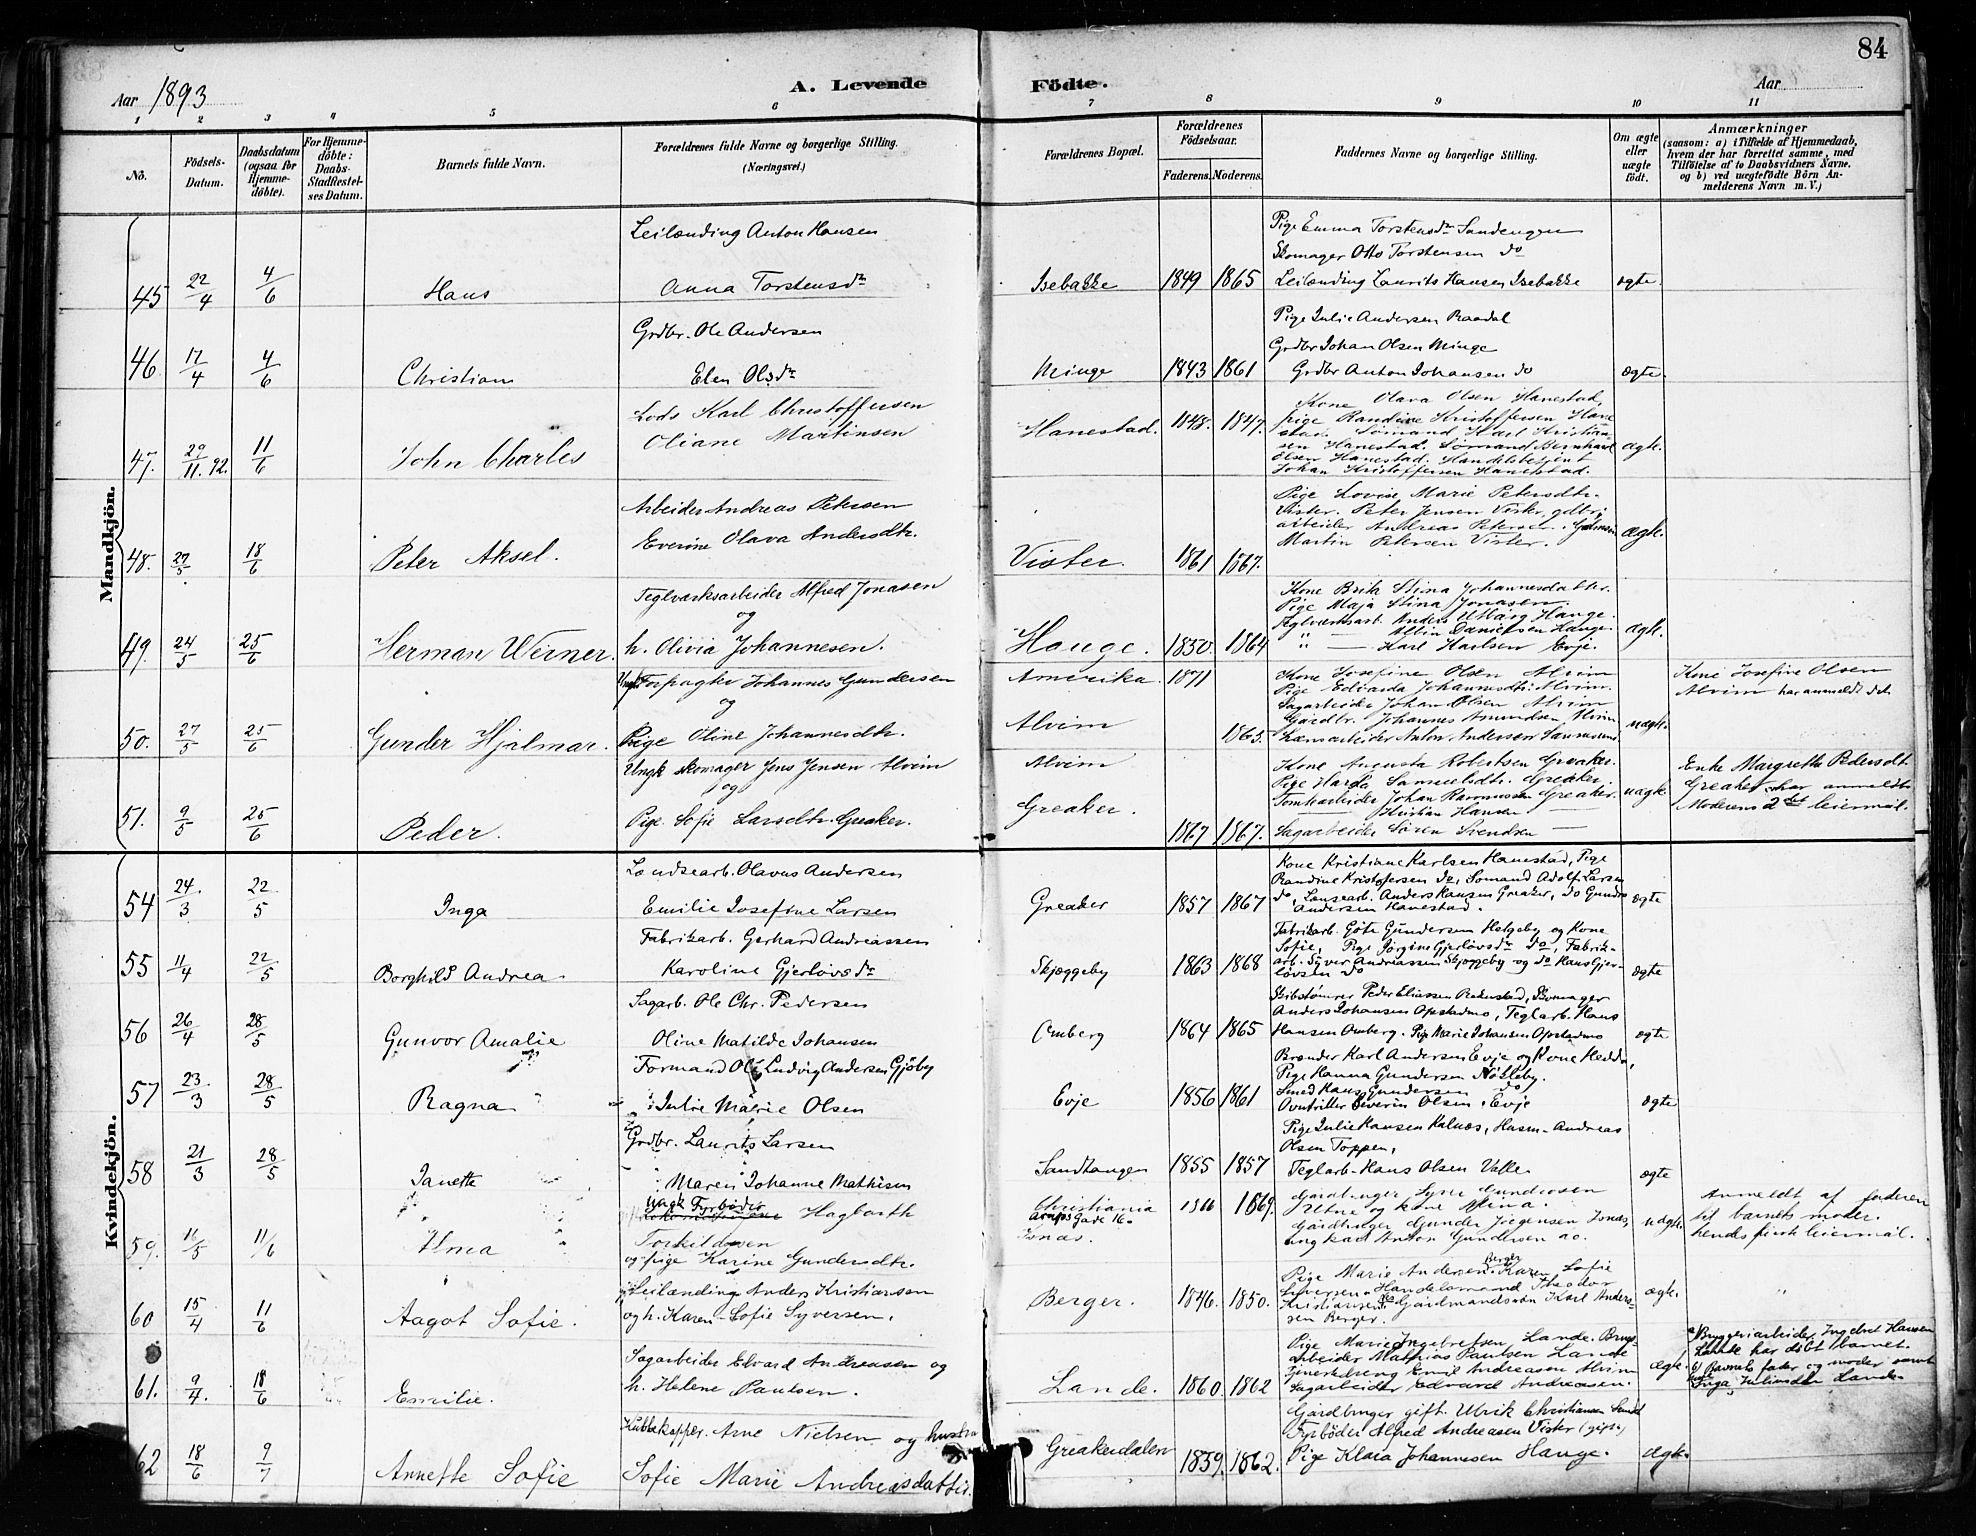 84
Aar 1893
A. Levende Födte.
Aar
1 2 3 4 5 6 7 8 9 10 11
No.
Födsels-Datum.
Daabsdatum (ogsaa for Hjemmedöbte).
For Hjemmedöbte: Daabs-Stadfestelses Datum.
Barnets fulde Navn.
Forældrenes fulde Navne og borgerlige Stilling. (Næringsvei.)
Forældrenes Bopæl.
Forældrenes Födselsaar.
Faderens. Moderens.
Faddernes Navne og borgerlige Stilling.
Om ægte eller uægte födt.
Anmærkninger (saasom: a) i Tilfælde af Hjemmedaab, hvem der har forrettet samme, med Tilföielse af to Daabsvidners Navne. og b) ved uægtefödte Börn Anmelderens Navn m. V.)
Mandkjön.
Leilænding Anton Hansen
Pige Emma Torstensdr Sandengen
Skomager Otto Torstensen do
45 22/4 4/6 Hans Anna Torstensdr Isebakke 1849 1865 Leilænding Laurits Hansen Isebakke ægte
Grdbr. Ole Andersen
Pige Julie Andersen Raadal
Grdbr Johan Olsen Minge
46 17/4 4/6 Christian Elen Olsdr Minge 1843 1861 Grdbr Anton Johansen do ægte
Lods Karl Christoffersen
Oliane Martinsen
Kone Olava Olsen Hanestad,
pige Randine Kristoffersen Hanestad. Sømand Karl Kristiansen Hanestad. Sømand Bernhard
Olsen Hanestad. Handelsbetjent
Johan Kristoffersen Hanestad.
47. 29/11.92. 11/6 John Charles Hanestad. 1848. 1847. ægte.
Arbeider Andreas Petersen
Everine Olava Andersdtr.
Pige Lovise Marie Petersdtr.
Vister. Peter Jensen Vister,
arbeider Andreas Petersen.
Martin Petersen Vister.
48. 27/5 18/6 Peter Aksel. Vister. 1861 1867. ægte.
Teglværksarbeider Alfred Jonasen
og
h. Olivia Johannesen.
Kone Brita Stina Johannesdatter.
Pige Maja Stina Jonasen.
Teglværksarb. Anders Hauge.
" — Albin Danielsen Hauge
" — Karl Karlsen Evje.
49. 24/5 25/6 Herman Werner. Hauge. 1850. 1864 ægte.
Ungk. Forpagter Johannes Gundersen
og
Pige Oline Johannesdtr.
Amerika. 1871
Alvim 1863.
Kone Josefine Olsen Alvim
Pige Edvarda Johannesdtr. Alvim.
Sagarbeider Johan Olsen Alvim
Gårdbr. Johannes Amundsen Alvim
Anton Andersen
50. 27/5 25/6 Gunder Hjalmar. uægte.
Kone Josefine Olsen
Alvim har anmeldt det
Ungk. skomager Jens Jensen Alvim
og
Pige Sofie Larsdtr. Greaker.
Alvim
Greaker.
Kone Augusta Robertsen Greaker.
Pige Harda Samuelsdtr. Greaker.
Tomtarbeider Johan Rasmussen Greaker.
— Kristian Hansen
Sagarbeider Søren Svendsen —
51. 9/5 25/6 Peder. 1867 1867. uægte
Enke Margrethe Pedersdtr.
Greaker har anmeldt.
Moderens 2det leiermål.
Kvindekjön.
Landsearb. Olavus Andersen
Emilie Josefine Larsen
Kone Kristiane Karlsen Hanestad, Pige
Randine Kristofersen do, Sømand Adolf Larsen
do, Lansearb. Anders Hansen Greaker, do Gunder
Andersen Hanestad.
54 24/3 22/5 Inga Greaker 1857 1867 ægte
Fabrikarb. Gerhard Andreassen
Karoline Gjerløvsdr
Fabrikarb. Göte Gundersen Helgeby og Kone
Sofie, Pige Jörgine Gjerløvsdr do, Fabrikarb. Syver Andreassen Skjøggeby og do Hans Gjerløvsen do
55 11/4 22/5 Borghild Andrea. Skjøggeby 1863 1868 ægte
Sagarb. Ole Chr. Pedersen
Oline Matilde Johansen
Skibstømrer Peder Eliassen Rakestad, Skomager
Anders Johansen Opstadmo, Teglarb. Hans
Hansen Omberg. Pige Marie Johansen Opstadmo
56 26/4 28/5 Gunvor Amalie Omberg 1864 1865 ægte
Formand Ole Ludvig Andersen Gjøby
Julie Marie Olsen
Brænder Karl Andersen Evje og Kone Hedda,
Pige Hanna Gundersen Nøkleby.
Smed Hans Gundersen do
Severin Olsen, Evje
57 23/3 28/5 Ragna Evje 1856 1861 ægte
Grdbr. Laurits Larsen
Maren Johanne Mathisen
Pige Julie Hansen Kalnæs, Husm. Andreas
Olsen Toppen,
Teglarb. Hans Olsen Valle
58 21/3 28/5 Janette Sandtangen 1855 1857 ægte
Ungk Fyrbøder Hagbarth
Torkildsen
og pige Karine Gundersdtr.
Christiania
Gade 16.
Isnæs.
1866 1869.
Gårdbruger Gundersen
og kone Mina.
Gårdbruger Gunder Jørgensen Isnæs,
Ungkarl Anton Gundersen do.
59. 16/5 11/6 Alma uægte
Anmeldt af faderen
til barnets moder.
hendes første leiermål.
Leilænding Anders Kristiansen
og h. Karen Sofie Syversen.
Pige Marie Andersen Berger Karen Sofie
Syversen. Handelsmand Theodor
Kristiansen. Gårdmandssøn Karl Andersen Berger.
60 15/4 11/6 Aagot Sofie. Berger. 1846. 1850. ægte.
Sagarbeider Edvard Andreasen og
h. Helene Paulsen.
Pige Marie Ingebretsen Lande. Brugsarbeider Mathias Paulsen Lande
Emil Andreasen Alvim
Sagarbeider Edvard Andreasen.
61. 9/4. 18/6 Emilie. Lande. 1860. 1862 ægte.
a) Bryggeriarbeider Ingebret Hansen
Lande har døbt barnet.
b) Barnets fader og moder samt
Inga Lande
Kubbekapper. Arne Nielsen og hustru
Sofie Marie Andreasdatter.
Gårdbruger gift. Ulrik Christiansen
Fyrbøder Alfred Andreasen Vister (gift)
Pige Klara Johannesen Hauge.
62 18/6 9/7 Annette Sofie Greakerdalen 1839. 1862. ægte.